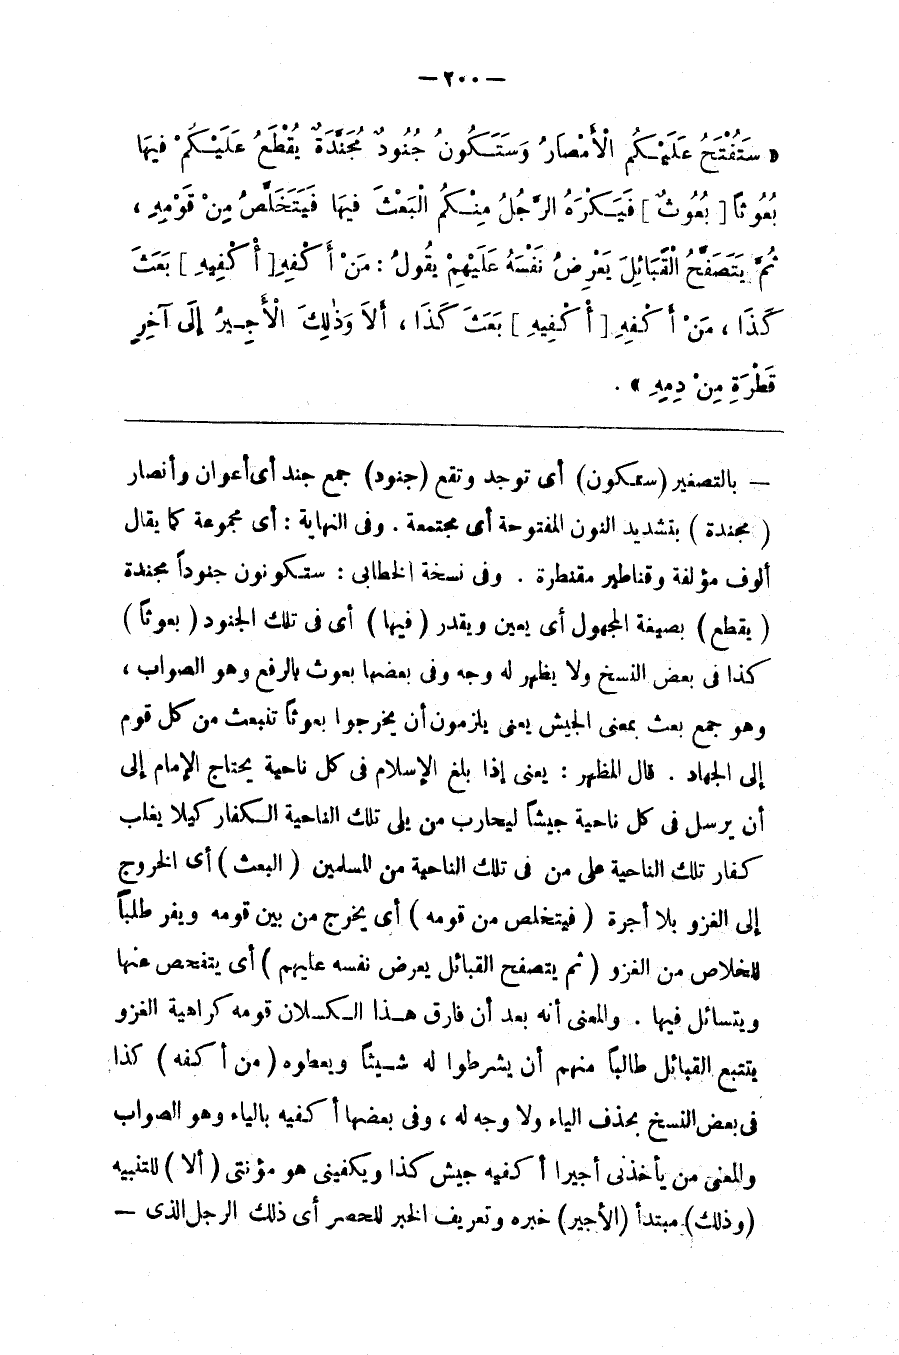 — ٢٠٠ —
« سَتُفْتَحُ عَلَيْكُمُ الْأَمْصَارُ وَسَتَكُونُ جُنُودٌ مُجَنَّدَةٌ يُقْطَعُ عَلَيْكُمْ فِيهَا
بُعُوثاً [ بُعُوثٌ ] فَيَكْرَهُ الرَّجُلُ مِنْكُمُ الْبَعْثَ فِيهَا فَيَتَخَلَّصُ مِنْ قَوْمِهِ ،
ثُمَّ يَتَصَفَّحُ الْقَبَائِلَ يَعْرِضُ نَفْسَهُ عَلَيْهِمْ يَقُولُ : مَنْ أَكْفِهِ [ أَكْفِيهِ ] بَعَثَ
كَذَا ، مَنْ أَكْفِهِ [ أَكْفِيهِ ] بَعَثَ كَذَا ، أَلَا وَذٰلِكَ الْأَجِيرُ إِلَى آخِرِ
قَطْرَةٍ مِنْ دَمِهِ » .
— بالتصغير (ستكون) أى توجد وتقع (جنود) جمع جند أى أعوان وأنصار
( مجندة ) بتشديد النون المفتوحة أى مجتمعة . وفى النهاية : أى مجموعة كما يقال
ألوف مؤلفة وقناطير مقنطرة . وفى نسخة الخطابى : ستكونون جنوداً مجندة
( يقطع ) بصيغة المجهول أى يعين ويقدر ( فيها ) أى فى تلك الجنود ( بعوثاً )
كذا فى بعض النسخ ولا يظهر له وجه وفى بعضها بعوث بالرفع وهو الصواب ،
وهو جمع بعث بمعنى الجيش يعنى يلزمون أن يخرجوا بعوثاً تنبعث من كل قوم
إلى الجهاد . قال المظهر : يعنى إذا بلغ الإسلام فى كل ناحية يحتاج الإمام إلى
أن يرسل فى كل ناحية جيشاً ليحارب من يلى تلك الناحية الكفار كيلا يغلب
كفار تلك الناحية على من فى تلك الناحية من المسلمين ( البعث ) أى الخروج
إلى الغزو بلا أجرة ( فيتخلص من قومه ) أى يخرج من بين قومه ويفر طلباً
للخلاص من الغزو ( ثم يتصفح القبائل يعرض نفسه عليهم ) أى يتفحص عنها
ويتسائل فيها . والمعنى أنه بعد أن فارق هذا الكسلان قومه كراهية الغزو
يتتبع القبائل طالباً منهم أن يشرطوا له شيئاً ويعطوه ( من أكفه ) كذا
فى بعض النسخ بحذف الياء ولا وجه له ، وفى بعضها أكفيه بالياء وهو الصواب
والمعنى من يأخذنى أجيرا أكفيه جيش كذا ويكفينى هو مؤنتى ( ألا ) للتنبيه
(وذلك) مبتدأ (الأجير) خبره وتعريف الخبر للحصر أى ذلك الرجل الذى —